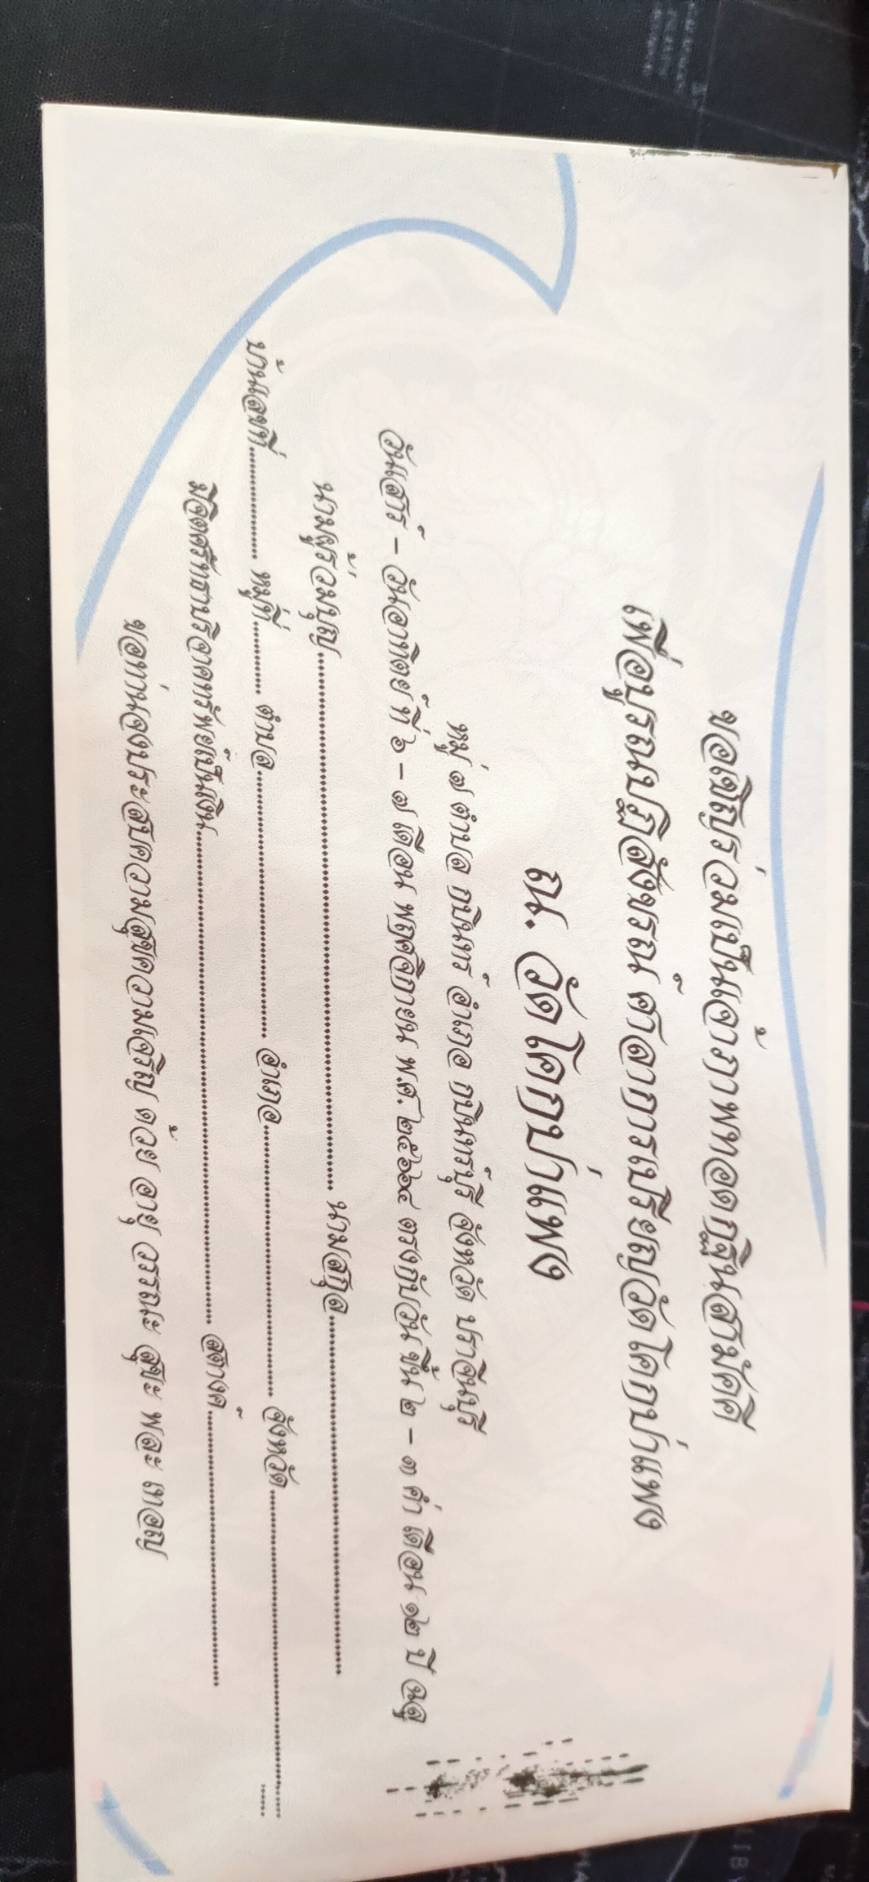 ขอเชิญร่วมเป็นเจ้าภาพทอดกฐินสามัคคี
เพื่อบูรณปฏิสังขรณ์ ศาลาการเปรียญวัดโคกป่าแพง
ณ. วัดโคกป่าแพง
หมู่ ๗ ตำบล กบินทร์ อำเภอ กบินทร์บุรี จังหวัด ปราจีนบุรี
วันเสาร์ - วันอาทิตย์ ที่ ๖ - ๗ เดือน พฤศจิกายน พ.ศ. ๒๕๖๔ ตรงกับวัน ขึ้น ๒ - ๓ ค่ำ เดือน ๑๒ ปี ฉลู
นามผู้ร่วมบุญ.................................................. นามสกุล..................................................
บ้านเลขที่.................. หมู่ที่............ ตำบล.............................. อำเภอ.............................. จังหวัด..............................
มีจิตศรัทธาบริจาคทรัพย์เป็นเงิน.................................................. สตางค์..............................
ขอท่านจงประสบความสุขความเจริญ ด้วย อายุ วรรณะ สุขะ พละ เทอญ